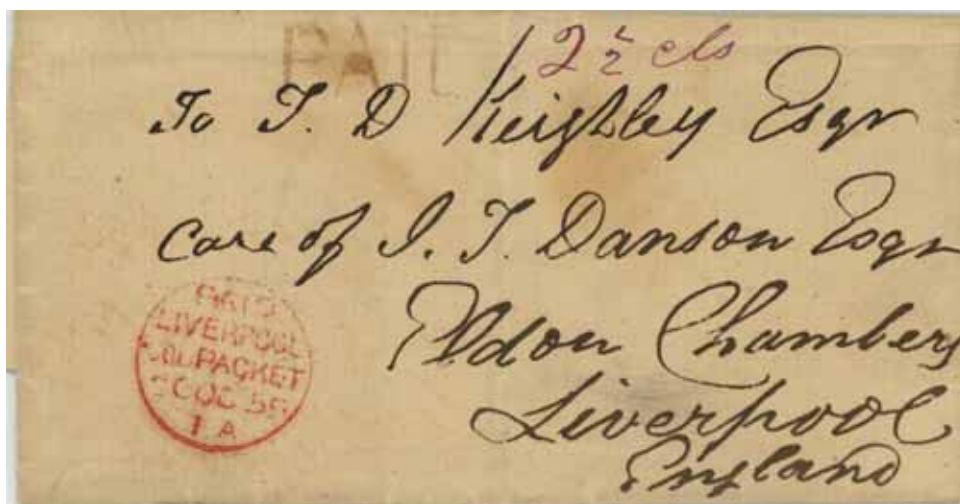 PAID
12½ cts
To T. D Keighley Esqr
care of J. T. Danson Esqr
Eldon Chambers
Liverpool
England
PAID
LIVERPOOL
COL.PACKET
OC 55
1 A